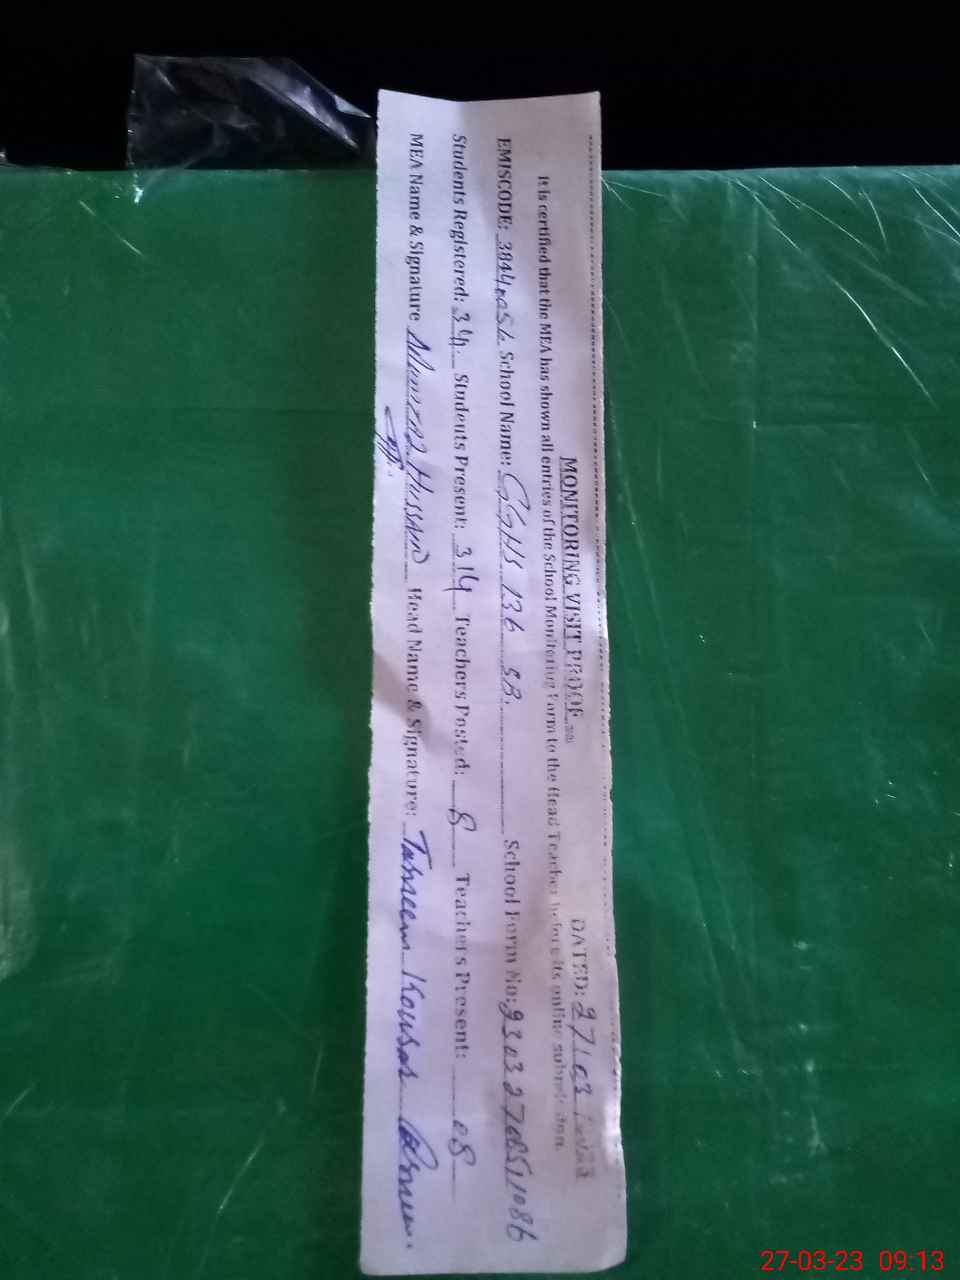 MONITORING VISIT PROOF
DATED: 27/03/2023
It is certified that the MEA has shown all entries of the School Monitoring Form to the Head Teacher before its online submission.
EMISCODE: School Name: GGHS 136 SB. School Form No:
Students Registered: 314 Students Present: 314 Teachers Posted: 8 Teachers Present: 08
MEA Name & Signature Hussain Head Name & Signature: Tahseem Kousar
27-03-23 09:13